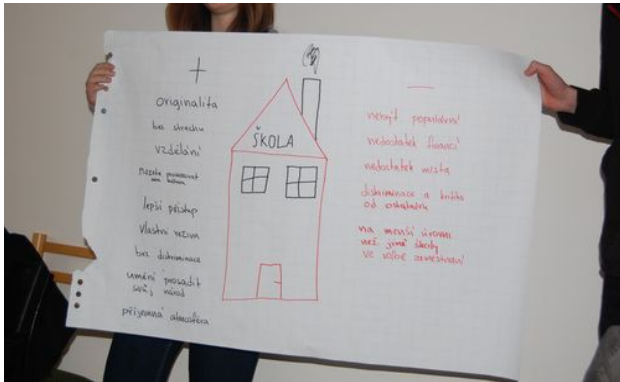 +
originalita
bez strachu
vzdělání
lepší přístup
Vlastní režim
bez diskriminace
umění prosadit
svůj názor
příjemná atmosféra
ŠKOLA
—
nebýt populární
nedostatek financí
nedostatek místa
diskriminace a kritika
od ostatních
na menší úrovni
než jiné školy
ve volbě zaměstnání